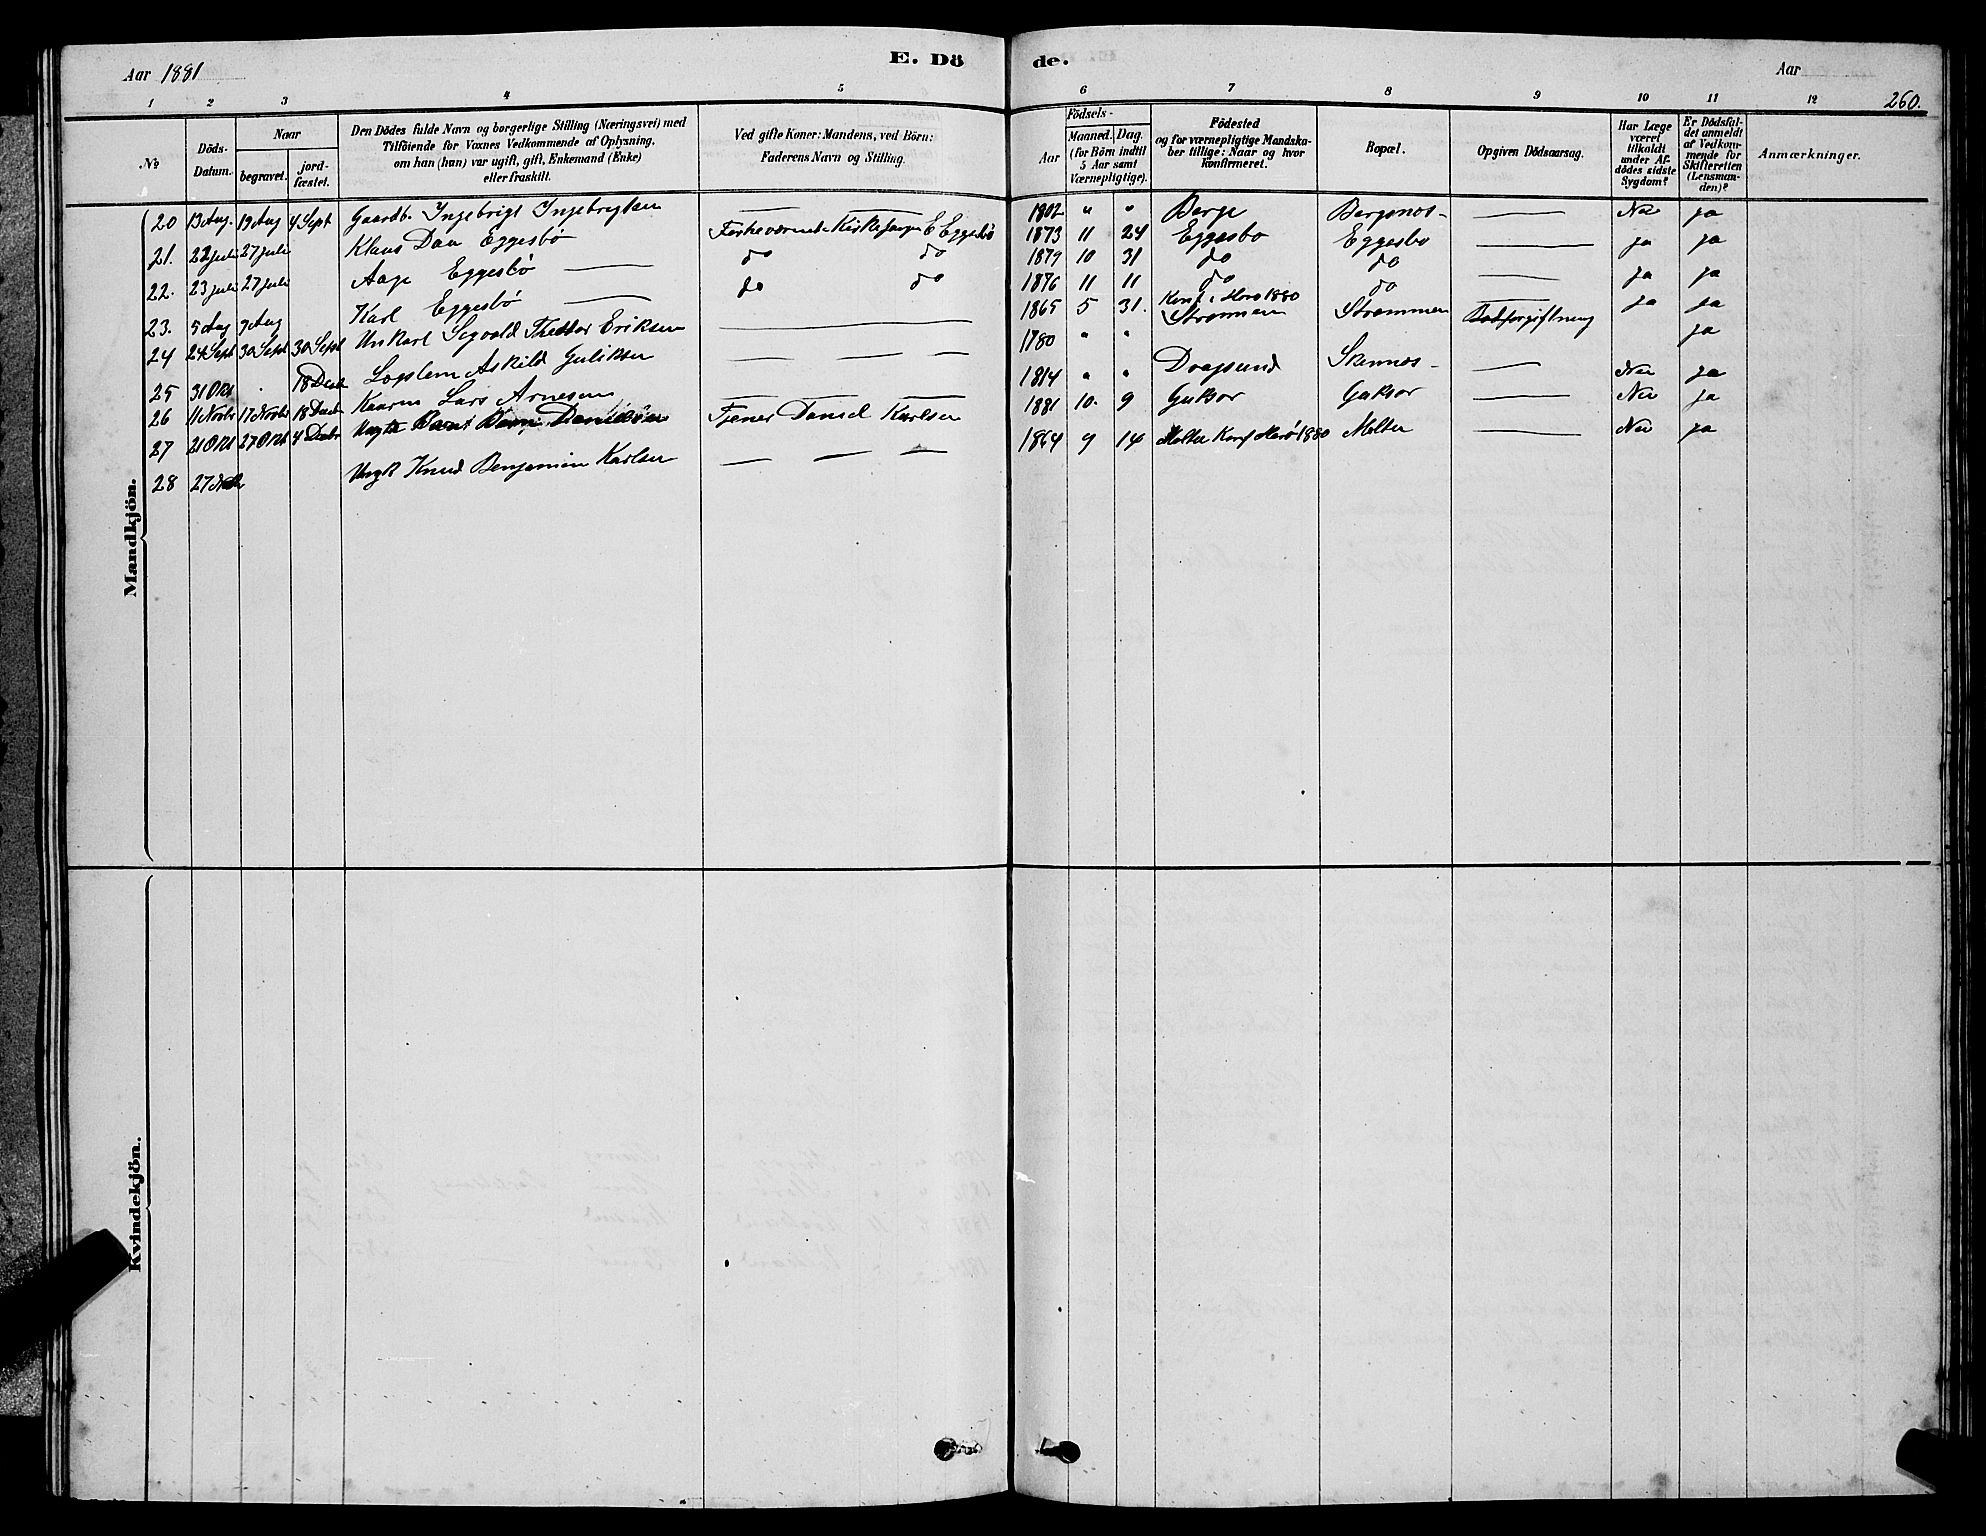 Aar 1881
E. Dö de.
Aar
260.
1 2 3 4 5 6 7 8 9 10 11 12
№
Döds-Datum.
Naar
begravet.
jord-fæstet.
Den Dödes fulde Navn og borgerlige Stilling (Næringsvei) med
Tilföiende for Voxnes Vedkommende af Oplysning,
om han (hun) var ugift, gift, Enkemand (Enke)
eller fraskilt.
Ved gifte Koner: Mandens, ved Börn:
Faderens Navn og Stilling.
Födsels-
Aar
Maaned. Dag.
(for Börn indtil
5 Aar samt
Værnepligtige).
Födested
og for værnepligtige Mandska-
ber tillige: Naar og hvor
konfirmeret.
Bopæl.
Opgiven Dödsaarsag.
Har Læge
været
tilkaldt
under Af-
dödes sidste
Sygdom?
Er Dödsfal-
det anmeldt
af Vedkom-
mende for
Skifteretten
(Lensman-
den)?
Anmærkninger.
Mandkjön.
20 13 Aug. 19 Aug 4 Sept Gaardb. Ingebrigt Ingebrigtsen — 1802 " " Berge Bergsnos — Nei ja
21. 22 juli 27 juli Klaus Daa Eggesbö Kirkesanger E Eggesbö 1873 11 24 Eggesbo Eggesbo — ja ja
22. 23 juli 27 juli Aage Eggesbö — do do 1879 10 31 do do — ja ja
23. 5 Aug 9 Aug Karl Eggesbö — do do 1876 11 11 do do — ja ja
24 24 Sept 30 Sept 30 Sept Unkarl Segvald Theodor Eriksen — 1865 5 31. Konf. i Herö 1880 Strømmen Strømmen Blodforgiftning ja
25 31 Okt . 18 Decb Logslem Askild Guliksen — — — 1780 " " Dragsund Skennos — Nei ja
26 11 Novbr 17 Novbr 18 Decbr Kaarm Lars Arnesen — 1814 " " Gursør Gursør — Nei ja
27 21 Okt 27 Okt 4 Decbr Daniel Karlsen 1881 10 9
28 27 Ungk Knud Benjamin Karlsen — — — 1864 9 14 Molter Konf Herö 1880 Molter — Nei ja
Kvindekjön.